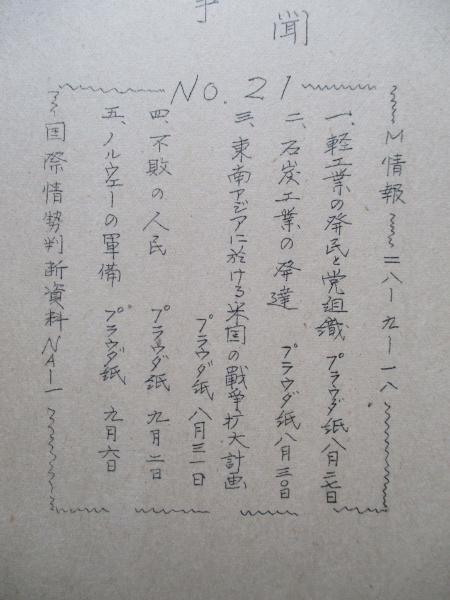 聞
No. 21
M情報 二八ー九ー一八
一、軽工業の発民と党組織 プラウダ紙 八月二七日
二、石炭工業の発達 プラウダ紙 八月三〇日
三、東南アジアに於ける米国の戰爭拡大計画
プラウダ紙 八月三一日
四、不敗の人民 プラウダ紙 九月二日
五、ノルウェーの軍備 プラウダ紙 九月六日
国際情勢判断資料NA—一